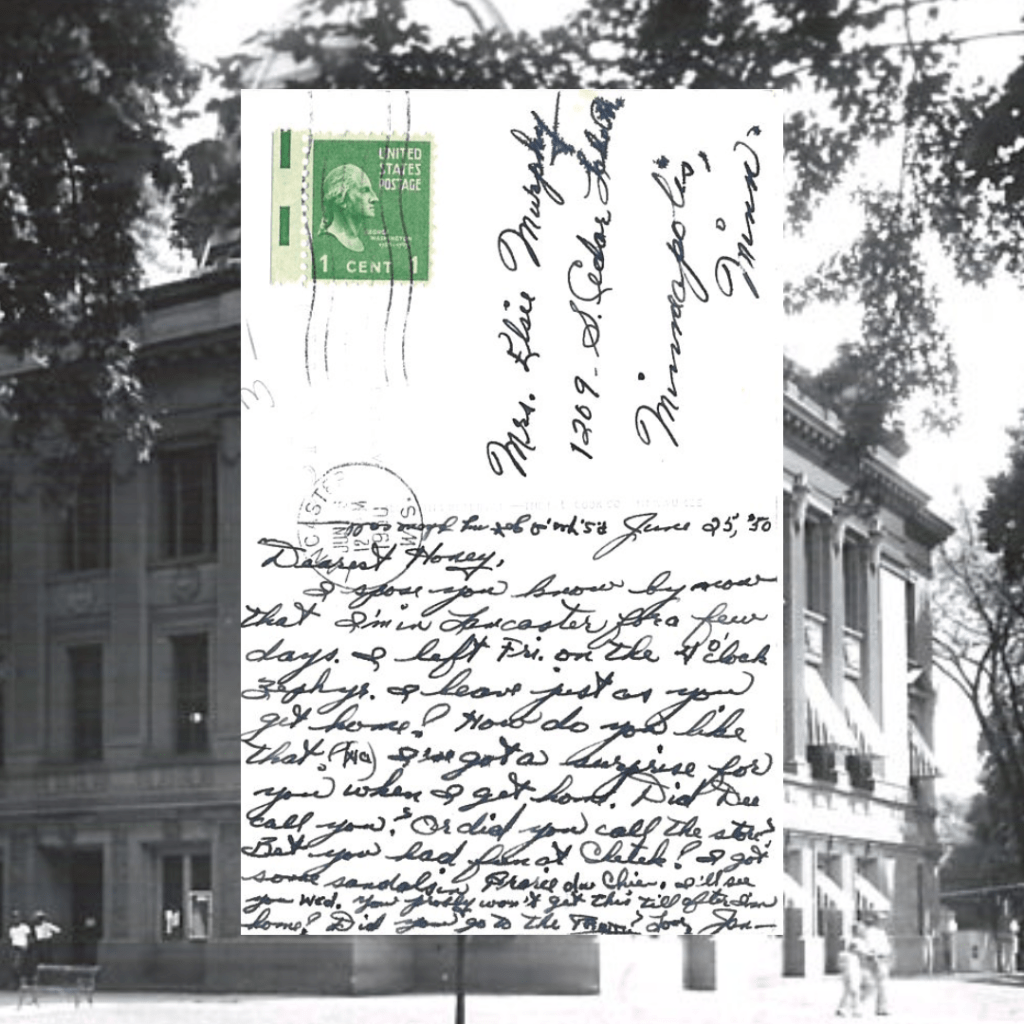 UNITED
STATES
POSTAGE
1 CENT 1
Mrs. Elsie Murphy
1209 - S. Cedar
Minneapolis,
Minn.
June 25, '50
Dearest Honey,
I spose you know by now
that I'm in Lancaster for a few
days. I left Fri. on the 4 o'clock
Zephyr. I leave just as you
get home! How do you like
that? (Ha) I've got a surprise for
you when I get home. Did Dee
call you? Or did you call the store?
Bet you had fun at Chetek! I got
some sandals in Prarie du Chien. I'll see
you Wed. You probly won't get this till after I'm
home! Did you go to the